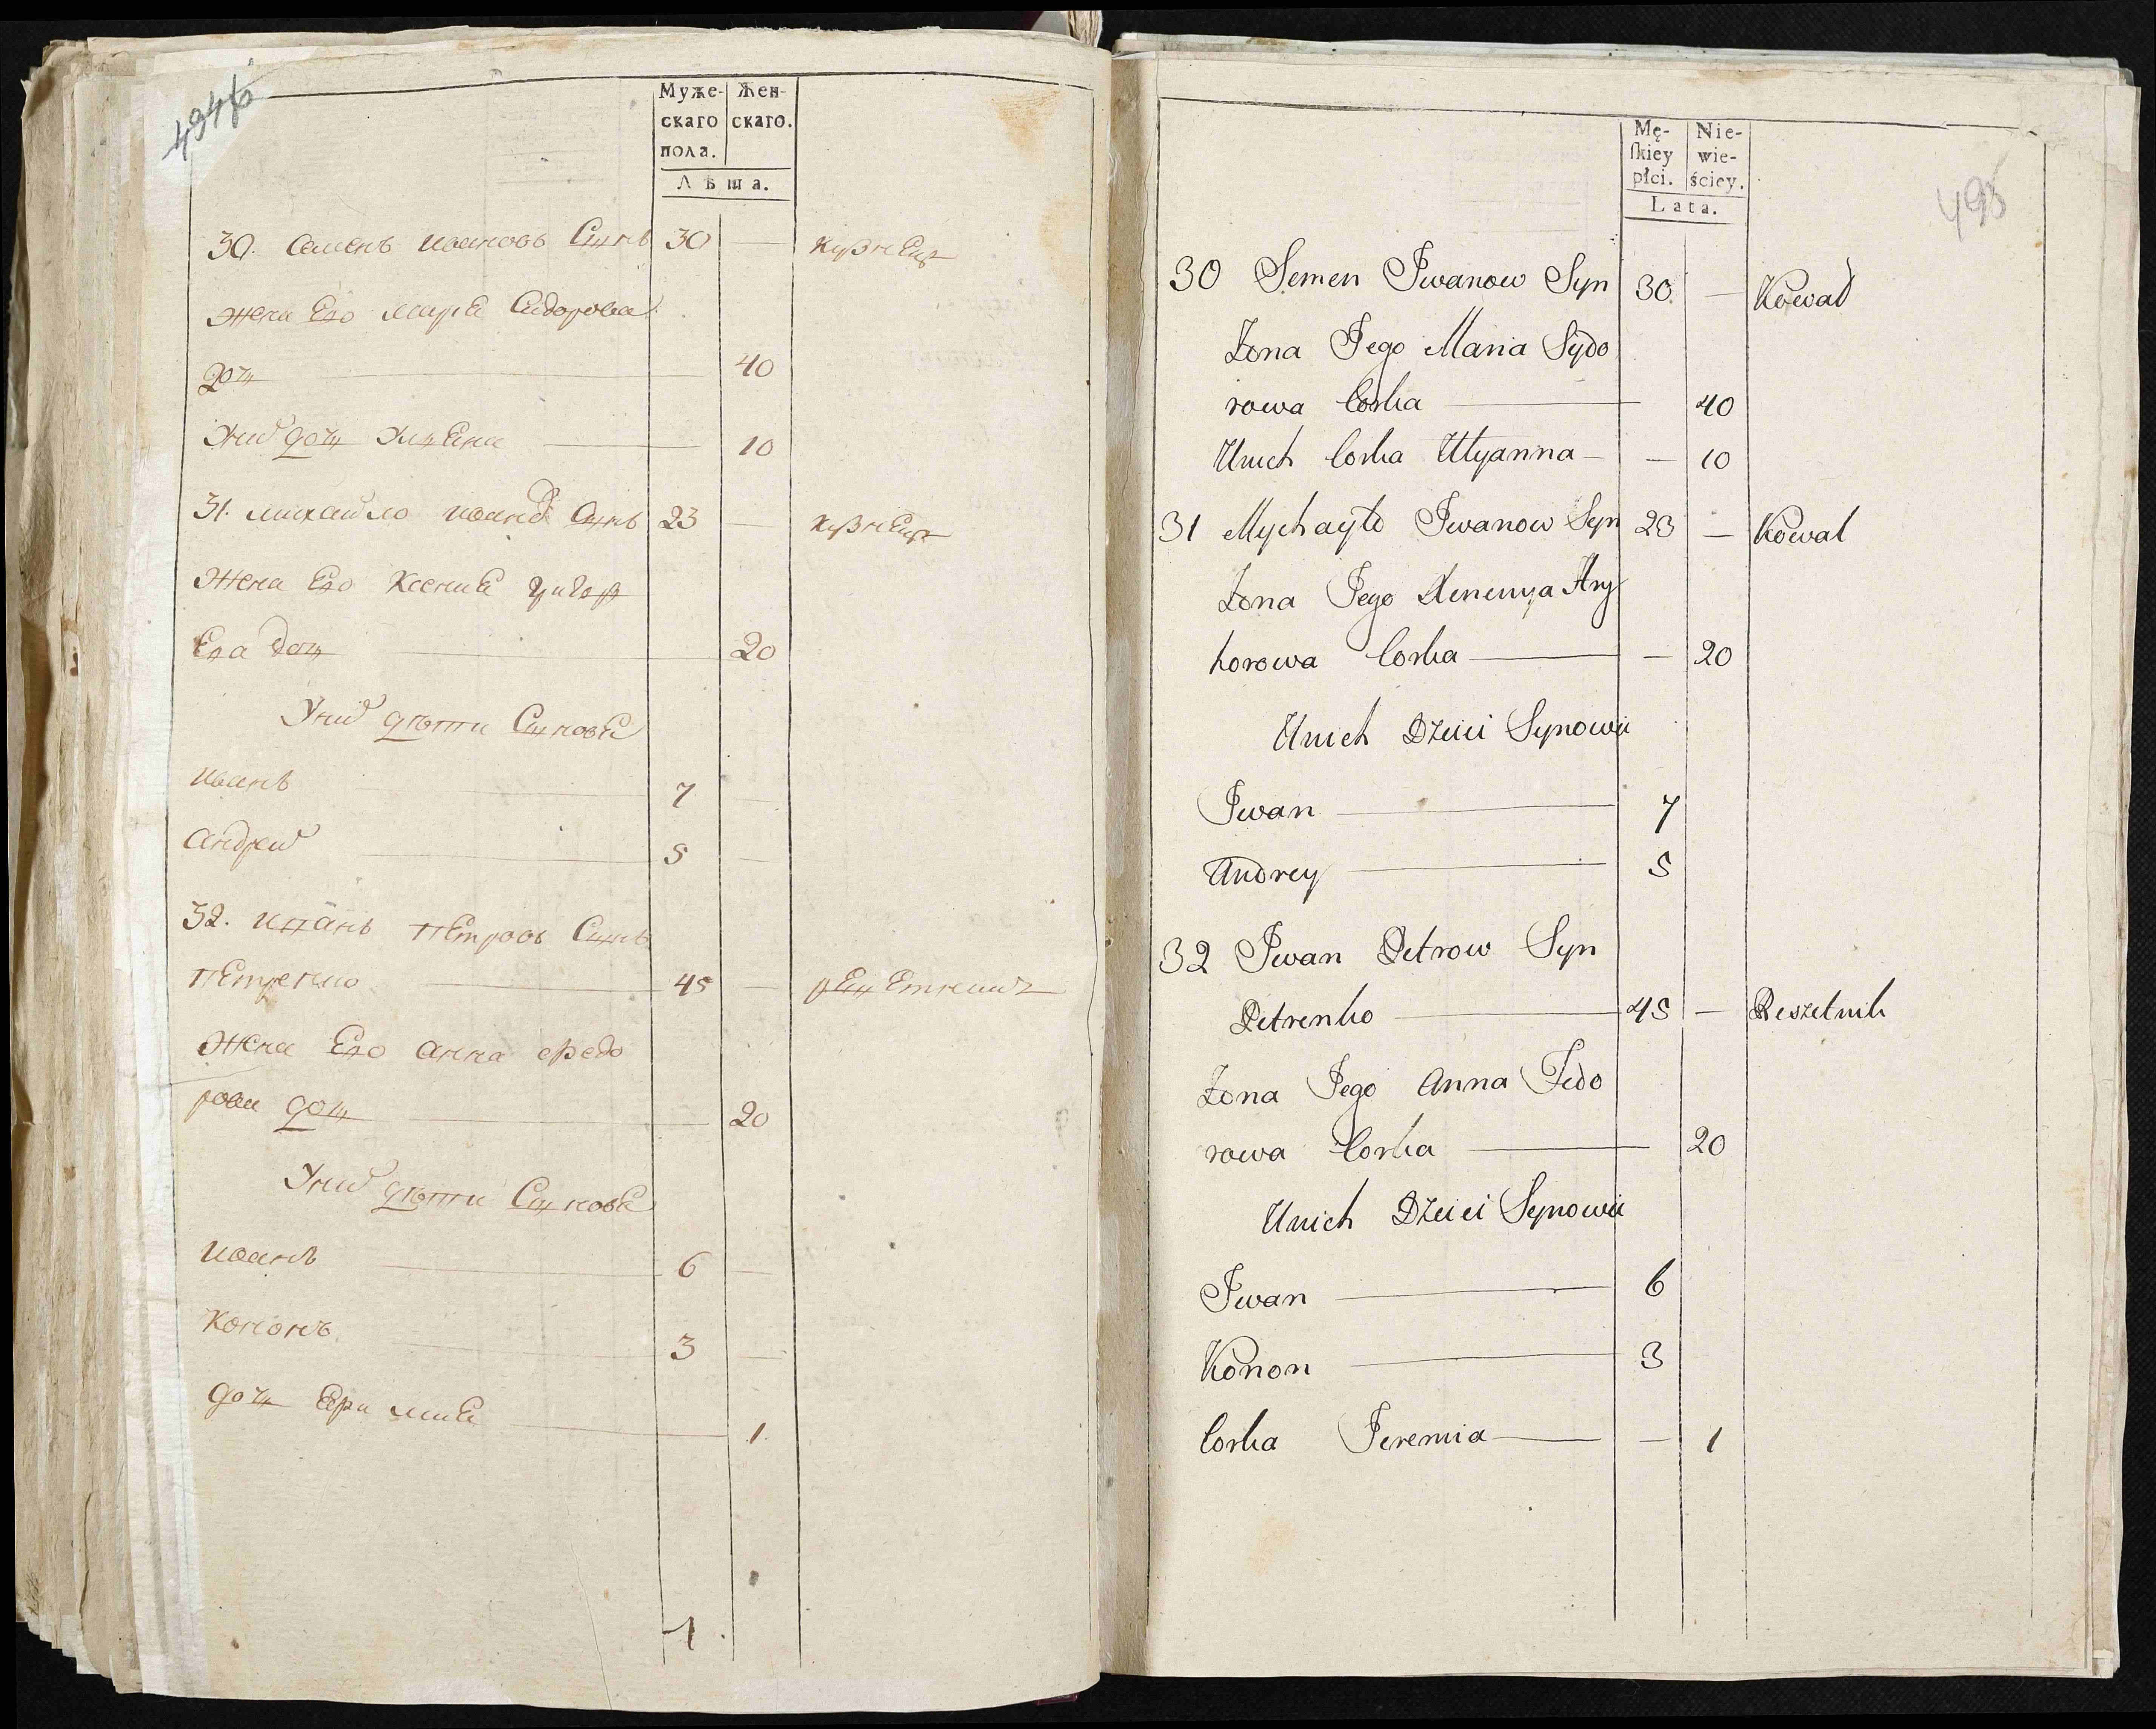 494
Муже-
скаго
пола.
Жен-
скаго.
Лѣта.
30. Семенъ Ивановъ Сынъ 30 — кузнецъ
жена Его марія Сидорова
дочь — 40
Унихъ дочь Ульяна — 10
31. михайло ивановъ Сынъ 23 — кузнецъ
жена Его Ксенія григор
Ева дочь — 20
Унихъ дѣти Сыновья
Иванъ — 7 —
андрей — 5 —
32. Иванъ Петровъ Сынъ
Петренко — 45 — решетникъ
жена Его анна федо
рова дочь — 20
Унихъ дѣти Сыновья
Иванъ — 6 —
Кононъ — 3 —
дочь Еримия — 1
1
495
Mę-
ſkiey
płci.
Nie-
wie-
ściey.
Lata.
30 Semen Iwanow Syn 30 — Kowal
Zona Iego Maria Sydo
rowa Corka — 40
Unich Corka Ulyanna — — 10
31 Mychayło Iwanow Syn 23 — Kowal
Zona Iego Xenenya Hry
horowa Corka — — 20
Unich Dzieci Synowie
Iwan — 7
Andrey — 5
32 Iwan Petrow Syn
Petrenko — 45 — Reszetnik
Zona Iego Anna Fedo
rowa Corka — 20
Unich Dzieci Synowie
Iwan — 6
Konon — 3
Corka Jeremia — — 1